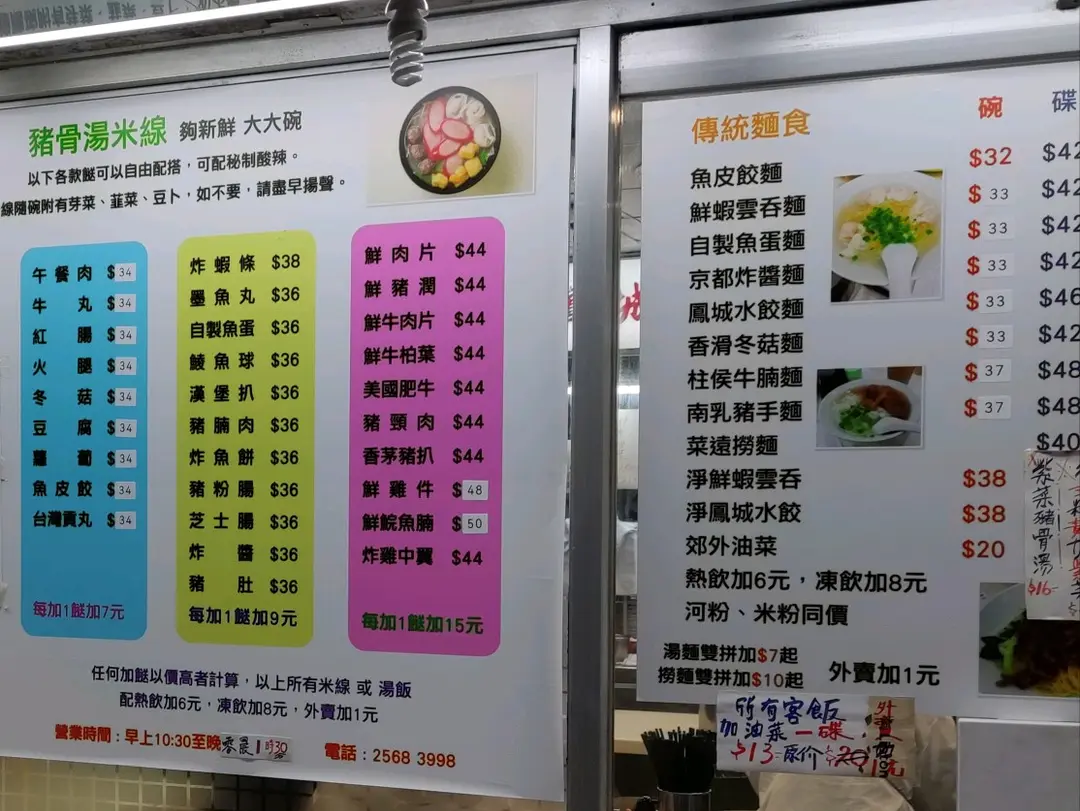 豬骨湯米線 夠新鮮 大大碗
以下各款餸可以自由配搭,可配秘制酸辣。
線隨碗附有芽菜、韮菜、豆卜,如不要,請盡早揚聲。
午餐肉 $34
牛丸 $34
紅腸 $34
火腿 $34
冬菇 $34
豆腐 $34
蘿蔔 $34
魚皮餃 $34
台灣貢丸 $34
每加1餸加7元
炸蝦條 $38
墨魚丸 $36
自製魚蛋 $36
鯪魚球 $36
漢堡扒 $36
豬腩肉 $36
炸魚餅 $36
豬粉腸 $36
芝士腸 $36
炸醬 $36
豬肚 $36
每加1餸加9元
鮮肉片 $44
鮮豬潤 $44
鮮牛肉片 $44
鮮牛柏葉 $44
美國肥牛 $44
豬頸肉 $44
香茅豬扒 $44
鮮雞件 $48
鮮鯇魚腩 $50
炸雞中翼 $44
每加1餸加15元
任何加餸以價高者計算,以上所有米線 或 湯飯
配熱飲加6元,凍飲加8元,外賣加1元
營業時間:早上10:30至晚零晨1時30
電話:2568 3998
傳統麵食 碗 碟
魚皮餃麵 $32 $42
鮮蝦雲吞麵 $33 $42
自製魚蛋麵 $33 $42
京都炸醬麵 $33 $42
鳳城水餃麵 $33 $46
香滑冬菇麵 $33 $42
柱侯牛腩麵 $37 $48
南乳豬手麵 $37 $48
菜遠撈麵 $40
淨鮮蝦雲吞 $38
淨鳳城水餃 $38
郊外油菜 $20
熱飲加6元,凍飲加8元
河粉、米粉同價
湯麵雙拼加$7起
撈麵雙拼加$10起
外賣加1元
紫菜豬骨湯
$16-
所有客飯
加油菜一碟
$13-原价$20
外賣